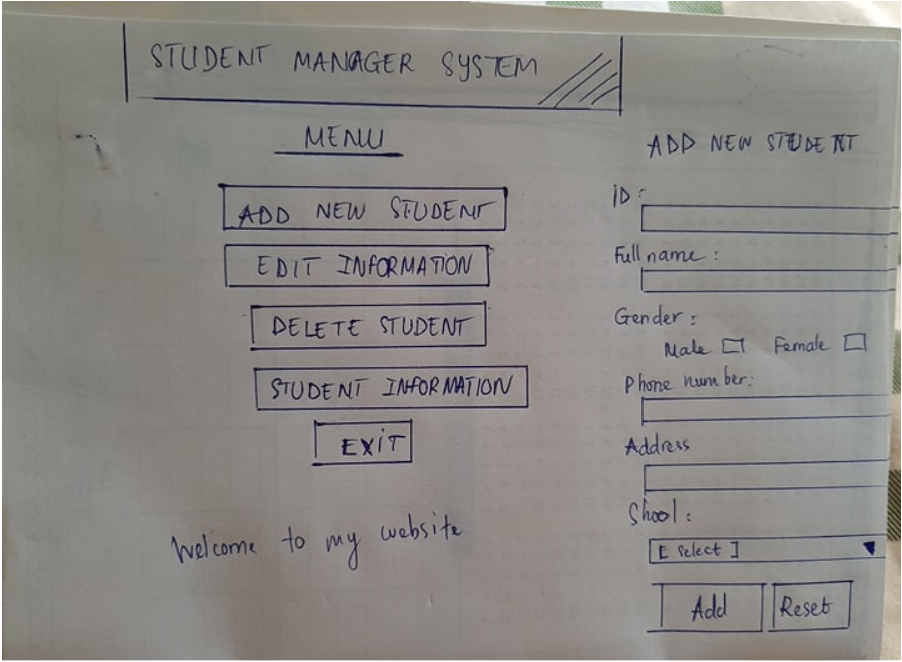 STUDENT MANAGER SYSTEM
MENU
ADD NEW STUDENT
EDIT INFORMATION
DELETE STUDENT
STUDENT INFORMATION
EXIT
Welcome to my website
ADD NEW STUDENT
ID:
Full name:
Gender:
Male Female
Phone number:
Address
Shool:
[select]
Add Reset